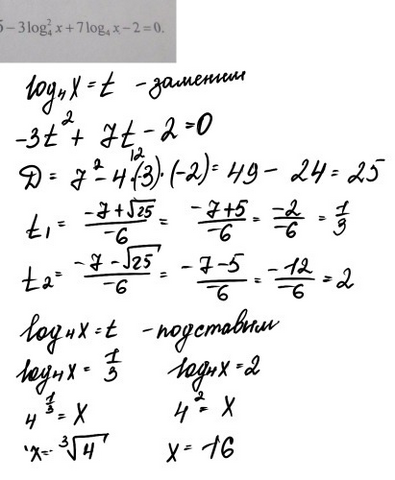 5 - 3log₄²x + 7log₄x - 2 = 0.
log₄x = t - заменим
-3t² + 7t - 2 = 0
12
D = 7² - 4·(-3)·(-2) = 49 - 24 = 25
t₁ = (-7+√25)/-6 = (-7+5)/-6 = -2/-6 = 1/3
t₂ = (-7-√25)/-6 = (-7-5)/-6 = -12/-6 = 2
log₄x = t - подставим
log₄x = 1/3 log₄x = 2
4^(1/3) = x 4² = x
x = ³√4 x = 16